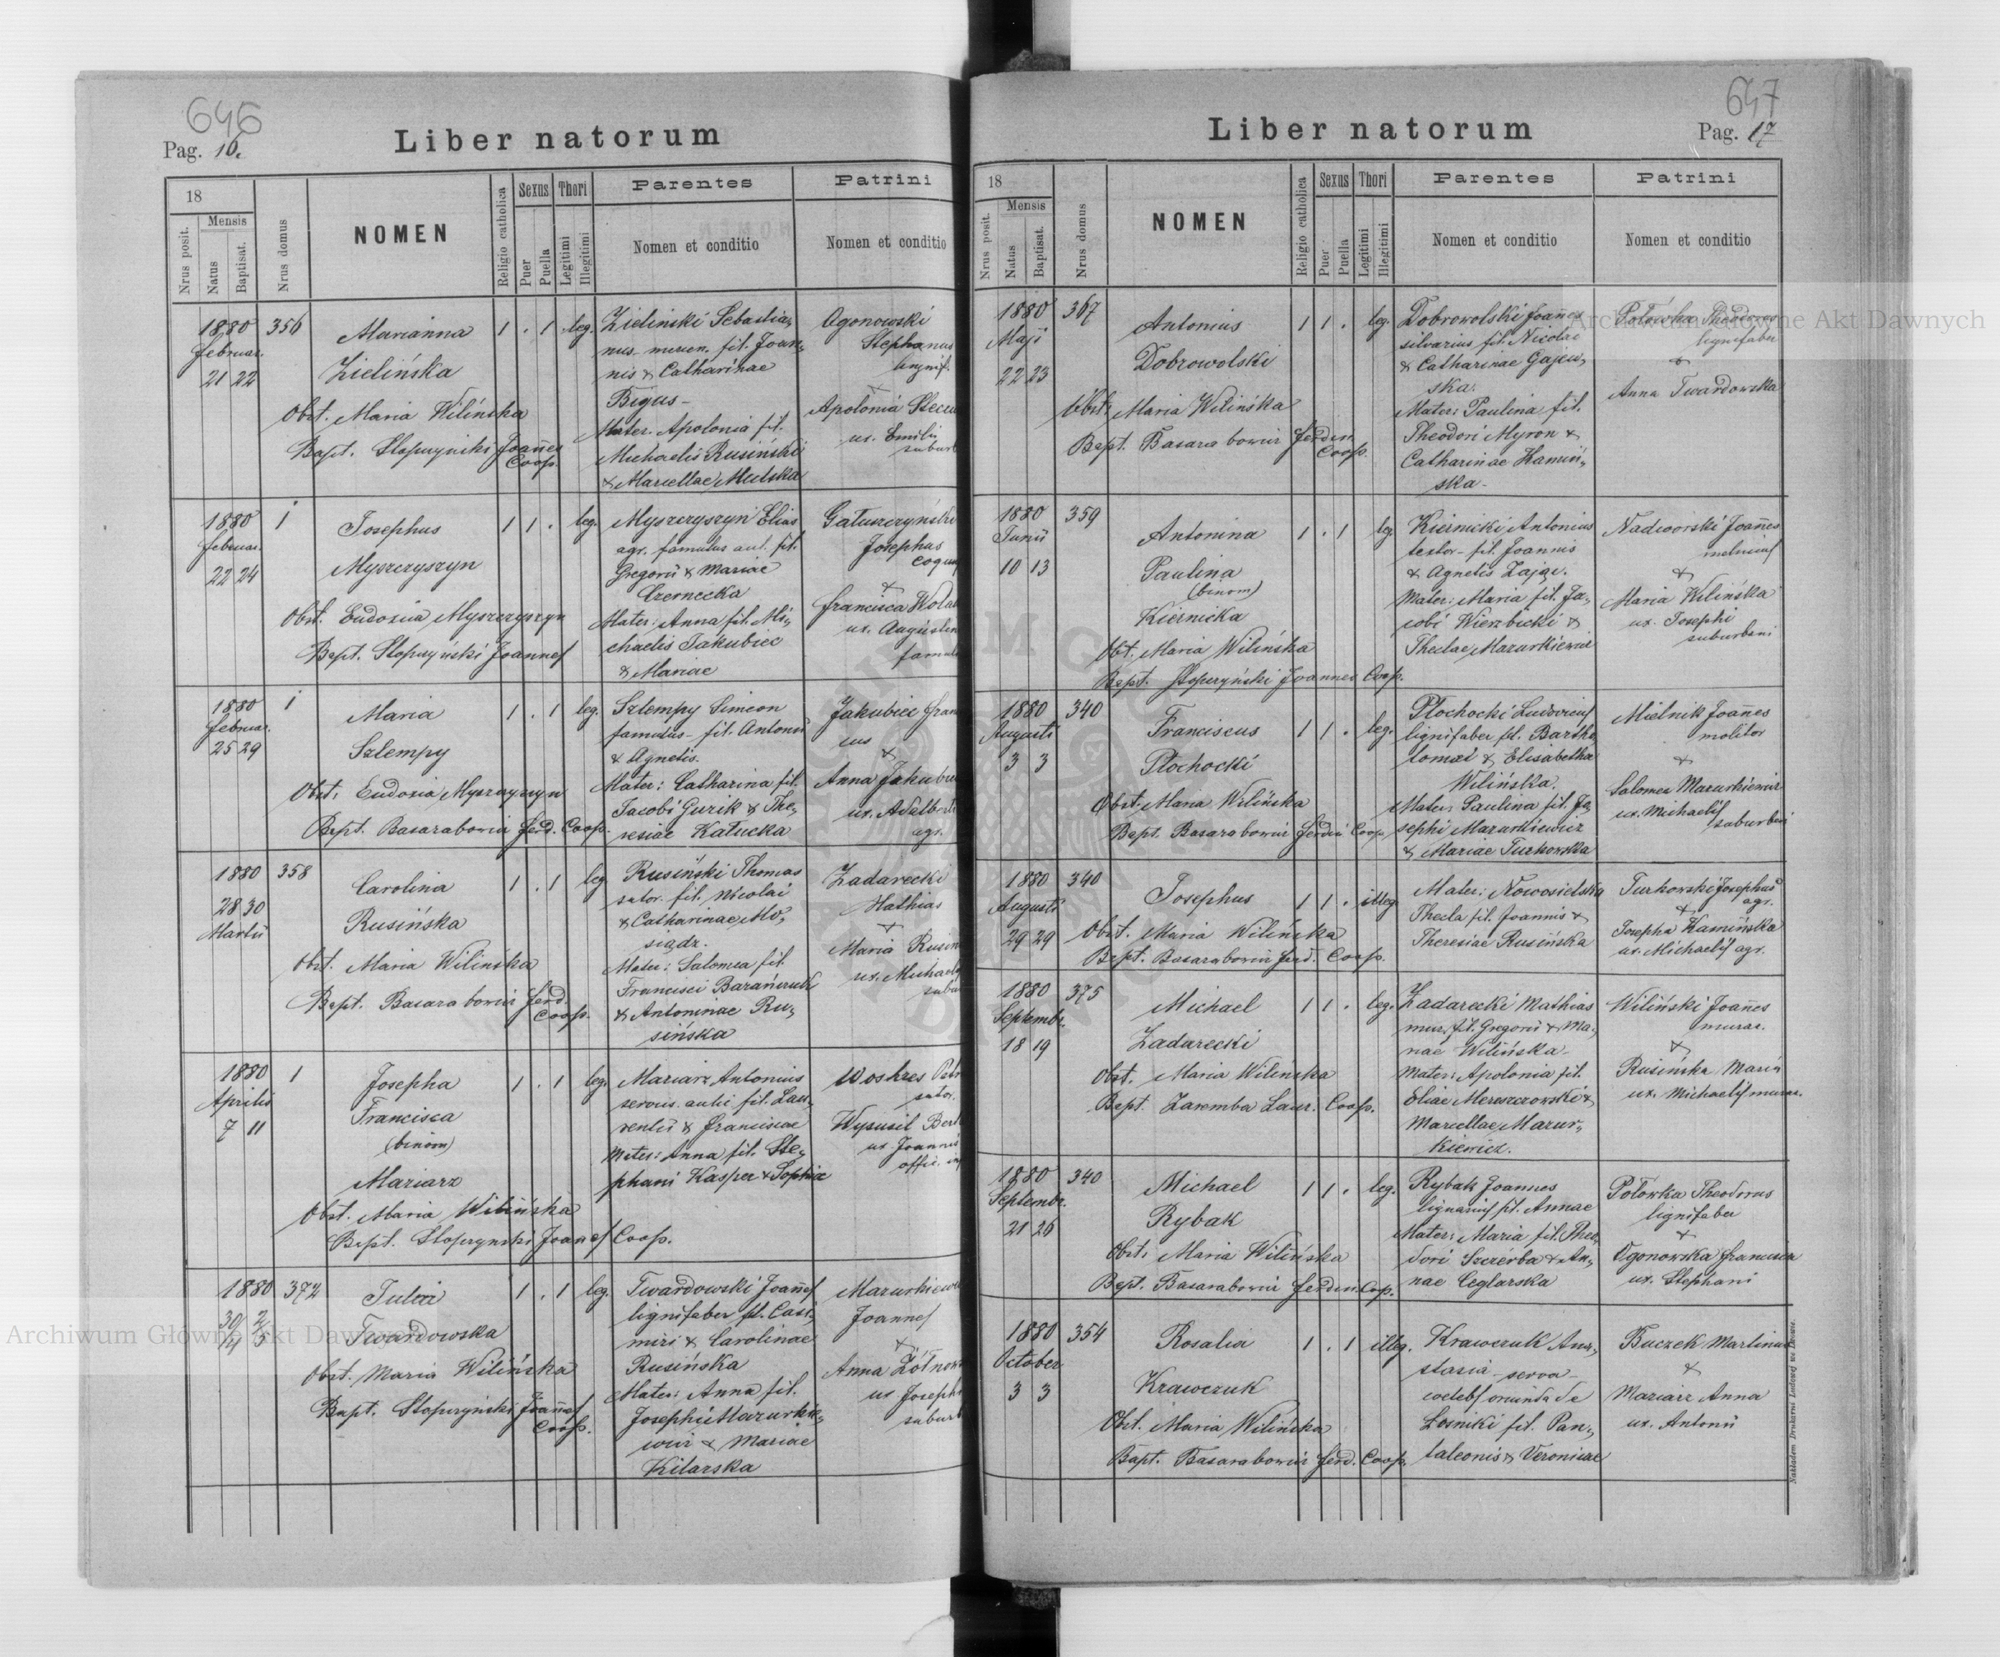 646
Pag. 16.
Liber natorum
18
Nrus posit.
Mensis
Natus
Baptisat.
Nrus domus
NOMEN
Religio catholica
Sexus
Puer
Puella
Thori
Legitimi
Illegitimi
Parentes
Nomen et conditio
Patrini
Nomen et conditio
1880 356 Marianna 1 . 1 leg. Zieliński Sebastia-
Februar. nus fil. Joan-
21 22 Zielińska nis & Catharinae
Bigus-
Obst. Maria Wilińska Mater. Apolonia fil.
Bapt. Slopczyński Joannes Michaelis Rusiński
Coop. & Marcellae Mulska
Ogonowski
Stephanus
Apolonia
ux. Emilii
1880 1 Josephus 1 1 . leg. Myszczyszyn Elias
Februar. agr. famulus aul. fil.
22 24 Myszczyszyn Gregorii & Mariae
Czernecka
Obst. Eudoxia Myszczyszyn Mater: Anna fil. Mi-
Bapt. Slopczyński Joannes chaelis Jakubiec
& Mariae
Gałuszczyński
Josephus
Francisca
ux. Augustin
1880 1 Maria 1 . 1 leg. Szlempy Simeon
Februar. famulus fil. Antonii
25 29 Szlempy & Agnetis.
Obst. Eudoxia Myszczyszyn Mater: Catharina fil.
Bapt. Basarabowicz Ferd. Coop. Jacobi Guzik & The-
resiae Kałucka
Jakubiec
Anna
ux.
agr.
1880 358 Carolina 1 . 1 leg. Rusiński Thomas
28 30 sutor. fil. Nicolai
Martii Rusińska & Catharinae Mo-
siądz.
Obst. Maria Wilińska Mater: Salomea fil.
Bapt. Basarabowicz Ferd. Francisci Barańczuk
Coop. & Antoninae Ru-
sińska
Zadarecki
Mathias
Maria
ux.
1880 1 Josepha 1 . 1 leg. Mariarz Antonius
Aprilis servus aulic fil. Lau-
7 11 Francisca rentii & Franciscae
(binom) Mater: Anna fil. Ste-
Mariarz phani Kasper & Sophiae
Obst. Maria Wilińska
Bapt. Slopczyński Joannes Coop.
sutor.
Wysusil
ux. Joannis
1880 372 Julia 1 . 1 leg. Twardowski Joannes
30/4 2/5 lignifaber fil. Casi-
Twardowska miri & Carolinae
Obst. Maria Wilińska Rusińska
Bapt. Slopczyński Joannes Mater: Anna fil.
Coop. Josephi Mazurkie-
wicz & Mariae
Kilarska
Joannes
Anna
ux
647
Pag. 17
Liber natorum
18
Nrus posit.
Mensis
Natus
Baptisat.
Nrus domus
NOMEN
Religio catholica
Sexus
Puer
Puella
Thori
Legitimi
Illegitimi
Parentes
Nomen et conditio
Patrini
Nomen et conditio
1880 367 Antonius 1 1 . leg. Dobrowolski Joannes
Maji silvarius fil. Nicolai
22 23 Dobrowolski & Catharinae Gajew-
ska.
Obst. Maria Wilińska Mater: Paulina fil.
Bapt. Basarabowicz Ferdin. Theodori Myron &
Coop. Catharinae Kamiń-
ska-
Połowka Theodorus
lignifaber
&
Anna Twardowska
1880 359 Antonina 1 . 1 leg. Kiernicki Antonius
Junii textor fil. Joannis
10 13 Paulina & Agnetis Zając.
(binom) Mater: Maria fil. Ja-
Kiernicka cobi Wierzbicki &
Obst. Maria Wilińska Theclae Mazurkiewicz
Bapt. Slopczyński Joannes Coop.
Nadworski Joannes
&
Maria Wilińska
ux. Josephi
suburbani
1880 340 Franciscus 1 1 . leg. Płochocki Ludovicus
Augusti lignifaber fil. Bartho-
3 3 Płochocki lomai & Elisabetha
Wilińska.
Obst. Maria Wilińska Mater: Paulina fil. Jo-
Bapt. Basarabowicz Ferdin Coop. sephi Mazurkiewicz
& Mariae Turkowska
Mielnik Joannes
molitor
&
Salomea Mazurkiewicz
ux. Michaelis
suburbani
1880 340 Josephus 1 1 . illeg. Mater: Nowosielska
Augusti Thecla fil. Joannis &
29 29 Theresiae Rusińska
Obst. Maria Wilińska
Bapt. Basarabowicz Ferd. Coop.
Turkowski Josephus
agr.
&
Josepha Kamińska
ux. Michaelis agr.
1880 375 Michael 1 1 . leg. Zadarecki Mathias
Septembr. mur. fil. Gregorii & Ma-
18 19 Zadarecki riae Wilińska-
Obst. Maria Wilińska Mater: Apolonia fil.
Bapt. Zaremba Laur. Coop. Eliae Meruszczowski &
Marcellae Mazur-
kiewicz.
Wiliński Joannes
murar.
&
Rusińska Maria
ux. Michaelis murar.
1880 340 Michael 1 1 . leg. Rybak Joannes
Septembr. lignarius fil. Annae
21 26 Rybak Mater: Maria fil. Theo-
Obst. Maria Wilińska dori Szczerba & An-
Bapt. Basarabowicz Ferdin. Coop. nae Ceglarska
Połowka Theodorus
lignifaber
&
Ogonowska Francisca
ux. Stephani
1880 354 Rosalia 1 . 1 illeg. Krawczuk Ana-
October. stasia serva
3 3 Krawczuk coelebs oriunda de
Obst. Maria Wilińska Losniki fil. Pan-
Bapt. Basarabowicz Ferd. Coop. taleonis & Veronicae
Buczek Martinus
&
Mariarz Anna
ux. Antonii
Archiwum Główne Akt Dawnych
Archiwum Główne Akt Dawnych